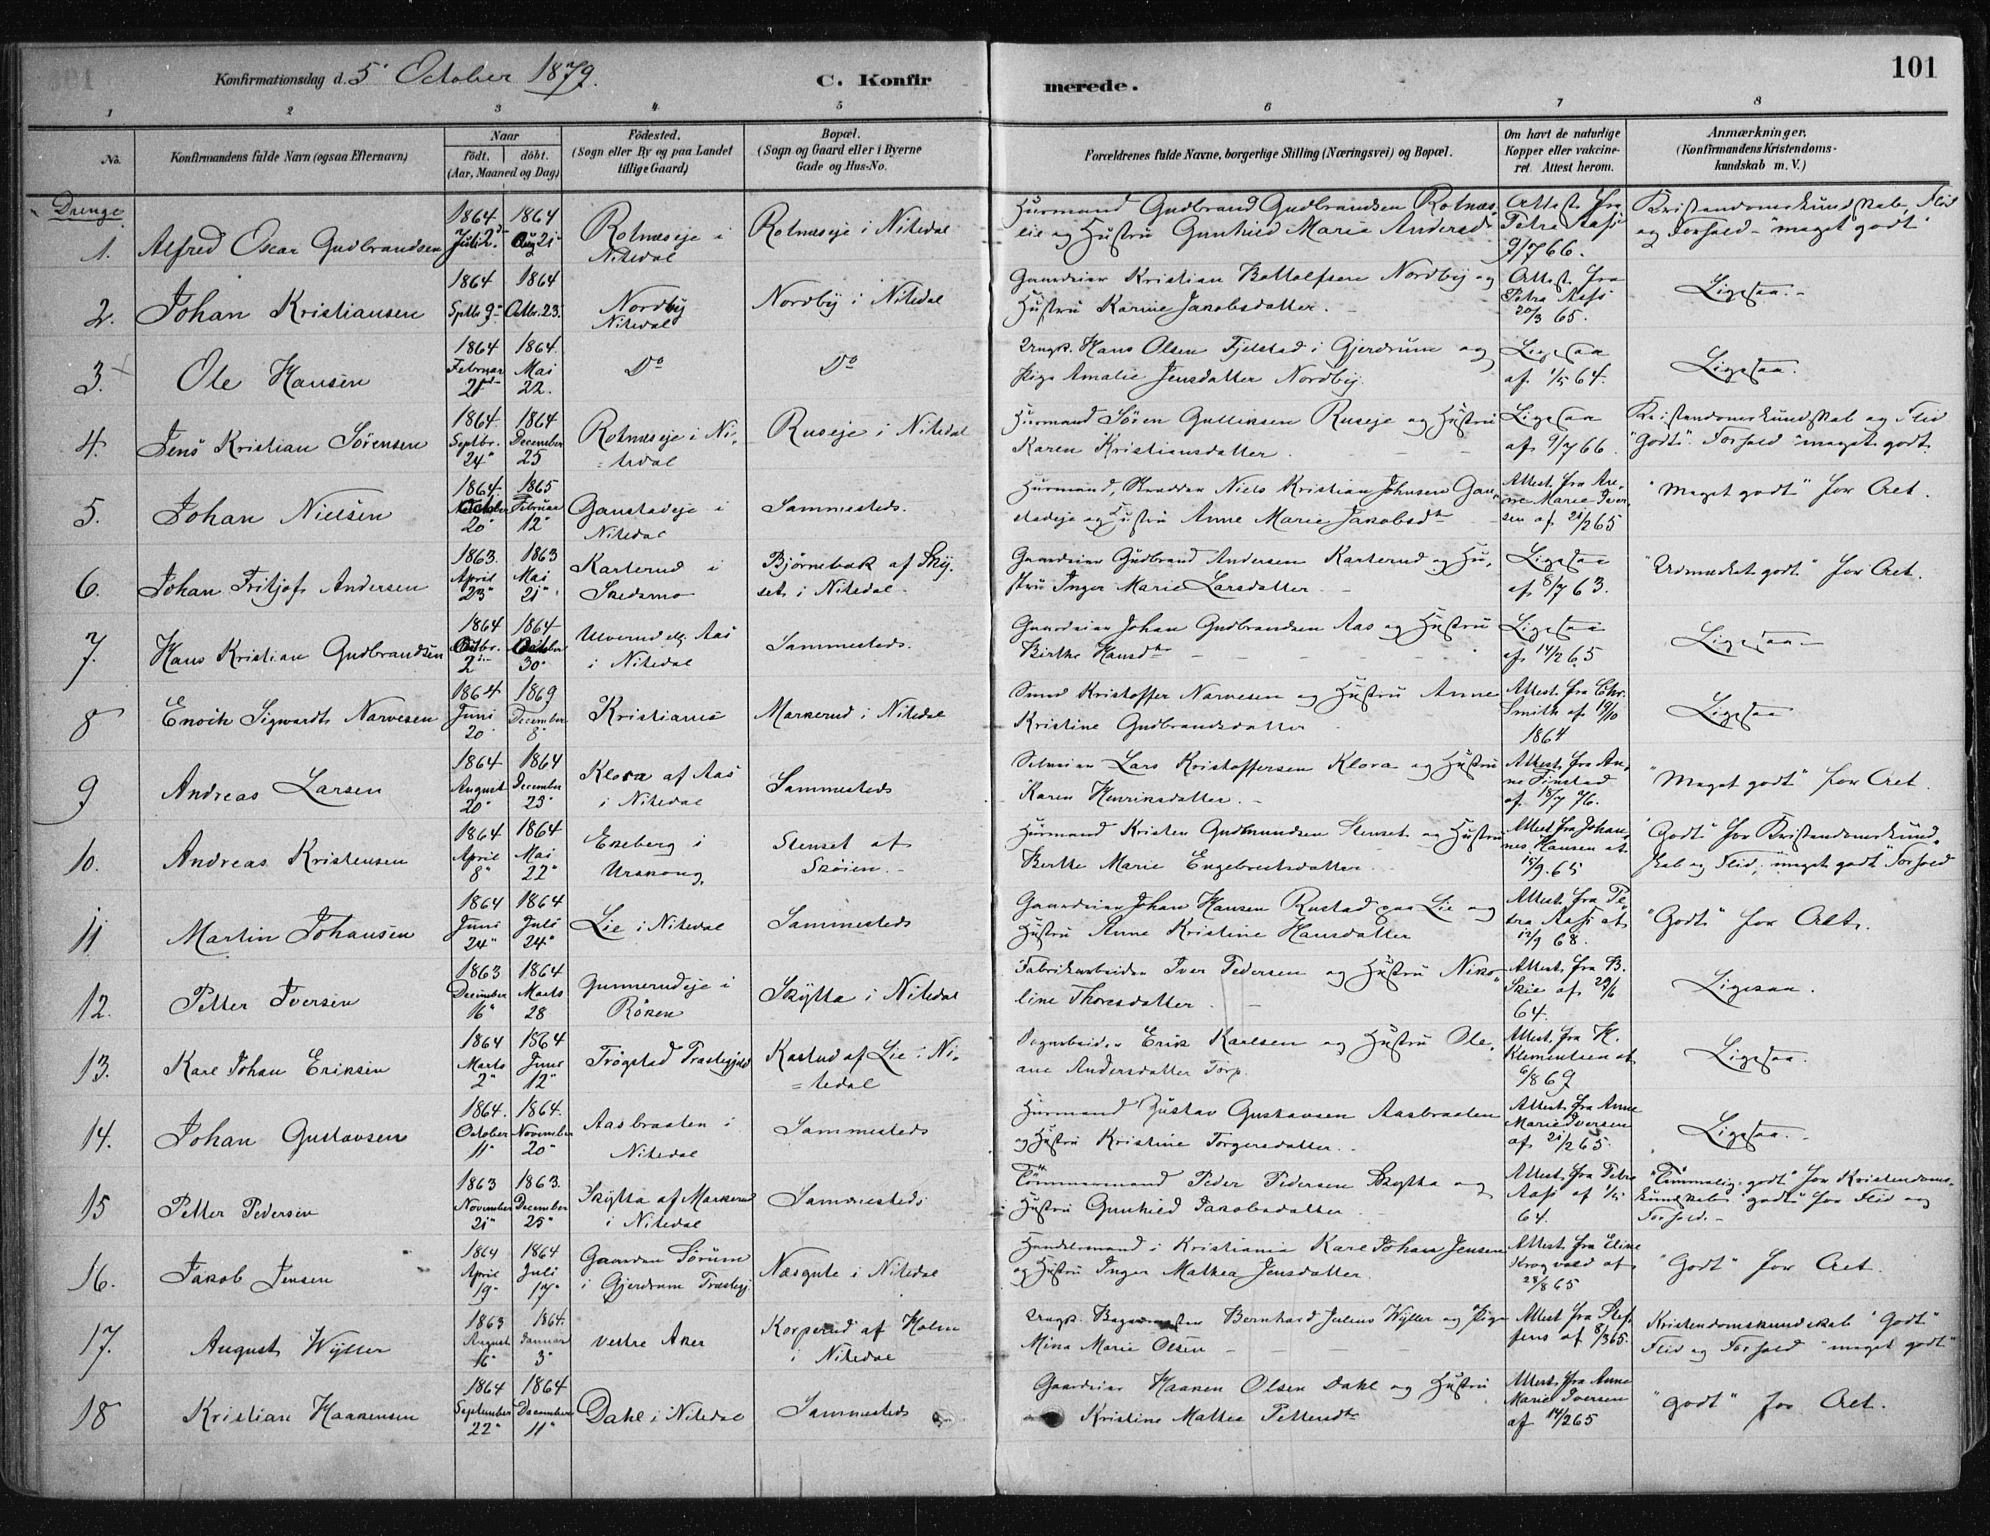 101
Konfirmationsdag d. 5' October 1879.
C. Konfirmerede.
1 2 3 4 5 6 7 8
No.
Konfirmandens fulde Navn (ogsaa Efternavn)
Naar
födt. döbt.
(Aar, Maaned og Dag)
Födested.
(Sogn eller By og paa Landet
tillige Gaard)
Bopæl.
(Sogn og Gaard eller i Byerne
Gade og Hus-No.
Forældrenes fulde Navne, borgerlige Stilling (Næringsvei) og Bopæl.
Om havt de naturlige
Kopper eller vakcine-
ret Attest herom.
Anmærkninger.
(Konfirmandens Kristendoms-
kundskab m. V.)
Drenge
1. Alfred Oscar Gudbrandsen
1864 Juli 2 1864 Aug 21
Rotnæseje i
Nitedal
Rotnæseje i Nitedal
Husmand Gudbrand Gudbrandsen Rotnæs-
eie og Hustru Gunhild Marie Andersd
Attest fra
Petra Aass
9/7 66.
Kristendomskundskab, Flid
og Forhold - "maget godt"
2. Johan Kristiansen
1864 Septbr 9 1864 Octbr. 23.
Nordby
Nitedal
Nordby i Nitedal
Gaardeier Kristian Bottolfsen Nordby og
Hustru Karine Jakobsdatter.
Attest fra
Petra Aass
20/3 65.
Ligesaa.
3. Ole Hansen
1864 Februar 21 1864. Mai 22.
Do
Do
Ungk. Hans Olsen Fjelstad i Gjerdrum og
Pige Amalie Jensdatter Nordby.
Ligesaa
af 1/5 64.
Ligesaa.
4. Jens Kristian Sørensen
1864 Septbr. 24" 1864 December 25
Rotnæseje i Ni-
=tedal
Ruseje i Nitedal
Husmand Sören Gulliksen Ruseje og Hustru
Karen Kristiansdatter.
Ligesaa
af 9/7 66.
Kristendomskundskab og Flid
"Godt". Forhold "maget godt
5. Johan Nielsen
1864 20" 1865 Februar 12"
Ganstadeje i
Nitedal
Sammesteds.
Husmand, Skrædder Niels Kristian Johnsen Gan-
stadeje og Hustru Anne Marie Jakobsdtr
Attest fra An-
ne Marie Iver
sen af 21/2 65
"Maget godt" for Alt.
6. Johan Fritjof Andersen
1863. April 23" 1863 Mai 21"
Karterud i
Skedsmo
Bjørnebæk af Sky-
set i Nitedal.
Gaardeier Gudbrand Andersen Karterud og Hu-
stru Inger Marie Larsdatter.
Ligesaa
af 8/7 63.
"Udmærket godt" for Alt.
7. Hans Kristian Gudbrandsen
1864 Octbr. 2 1864 October 30"
Ulverud elg. Aas
i Nitedal
Sammesteds.
Gaardeier Johan Gudbrandsen Aas og Hustru
Birthe Hansdtr
Ligesaa
af 14/2 65
Ligesaa
8 Enoch Sigwardt Narvesen
1864 Juni 20 1869 December 8"
Kristiania
Markerud i Nitedal
Smed Kristoffer Narvesen og Hustru Anne
Kristine Gudbrandsdatter
Attest fra Chr.
Smith af 19/10
1864
Ligesaa
9 Andreas Larsen
1864 August 20" 1864 December 23"
Klora af Aas
i Nitedal
Sammesteds
Selveier Lars Kristoffersen Klora og Hustru
Karen Henriksdatter.
Attest fra An-
ne Finstad
af 18/7 76.
"Maget godt" for Alt.
10. Andreas Kristensen
1864 April 8" 1864 Mai 22"
Eneberg i
Urskoug,
Stenset af
Skøien.
Husmand Kristen Gudmundsen Stenset og Hustru
Berthe Marie Engebretsdatter.
Attest fra Johan-
nes Hansen af
15/9.65
"Godt" for Kristendomskund-
skab og Flid, "maget godt" Forhold
11 Martin Johansen
1864 Juni 24" 1864 Juli 24"
Lie i Nitedal
Sammesteds
Gaardeier Johan Hansen Rustad paa Lie og
Hustru Anne Kristine Hansdatter
Attest fra Pe-
tra Aass af
12/9 68.
"Godt" for Alt.
12. Petter Iversen
1863 December 16" 1864 Marts 28
Gunnerudeje i
Röken
Skytta i Nitedal
Fabrikarbeider Iver Pedersen og Hustru Niko-
line Thoresdatter.
Attest fra B.
Skie af 29/6
64.
Ligesaa.
13. Karl Johan Eriksen
1864 Marts 2" 1864 Juni 12"
Trøgstad Præstegjeld
Kastud af Lie i Ni-
=tedal
Dagarbeider Erik Karlsen og Hustru Ole-
ane Andersdatter Torp.
Attest fra K.
Klementsen af
6/8 69
Ligesaa.
14. Johan Gustavsen
1864. October 11" 1864. November 20"
Aasbraaten i
Nitedal
Sammesteds
Husmand Gustav Gustavsen Aasbraaten
og Hustru Kristine Torgersdatter.
Attest fra Anne
Marie Iversen
af 21/2 65.
Ligesaa.
15 Petter Pedersen
1863 November 21" 1863. December 25"
Skytta af Markerud
i Nitedal
Sammesteds
Tömmermand Peder Pedersen Skytta og
Hustru Gunhild Jakobsdatter
Attest fra Petra
Aass af 1/5
64.
"Temmelig godt" for Kristendoms-
kundskab, "godt" for Flid og
Forhold.
16. Jakob Jensen
1864 April 19" 1864 Juli 17"
Gaarden Sørum
i Gjerdrum Præstegj.
Næsgute i Nitedal
Handelsmand i Kristiania Karl Johan Jensen
og Hustru Inger Mathea Jensdatter.
Attest fra Eline
Krogvold af
28/8 65
"Godt" for Alt.
17. August Wyller
1863 August 16" 1864. Januar 3"
Vestre Aker
Korperud af Holm
i Nitedal
Ungk. Bagermester Bernhard Julius Wyller og Pige
Mina Marie Olsen
Attest fra Stef-
fens af 8/3 65.
Kristendomskundskab "Godt"
Flid og Forhold "maget godt"
18 Kristian Haakensen
1864 September 22" 1864 December 11"
Dahl i Nitedal
Sammesteds
Gaardeier Haaken Olsen Dahl og Hustru
Kristine Mathea Pettersdtr
Attest fra Anne
Marie Iversen
af 14/2 65
"godt" for Alt.